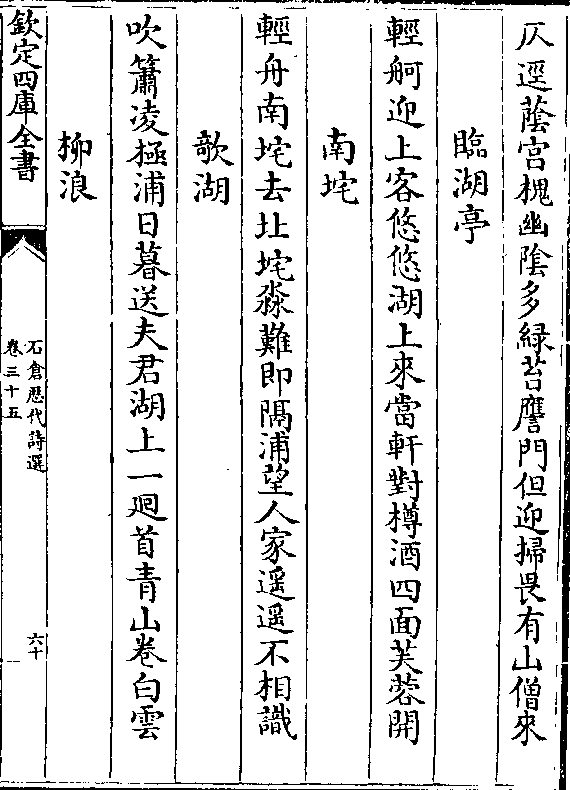 仄逕蔭宫槐幽陰多緑苔譍門但迎掃畏有山僧來
臨湖亭
輕舸迎上客悠悠湖上來當軒對樽酒四面芙蓉開
南垞
輕舟南垞去北垞淼難即隔浦望人家遥遥不相識
欹湖
吹簫凌極浦日暮送夫君湖上一廻首青山卷白雲
柳浪
欽定四庫全書
石倉歴代詩選
卷三十五
六十